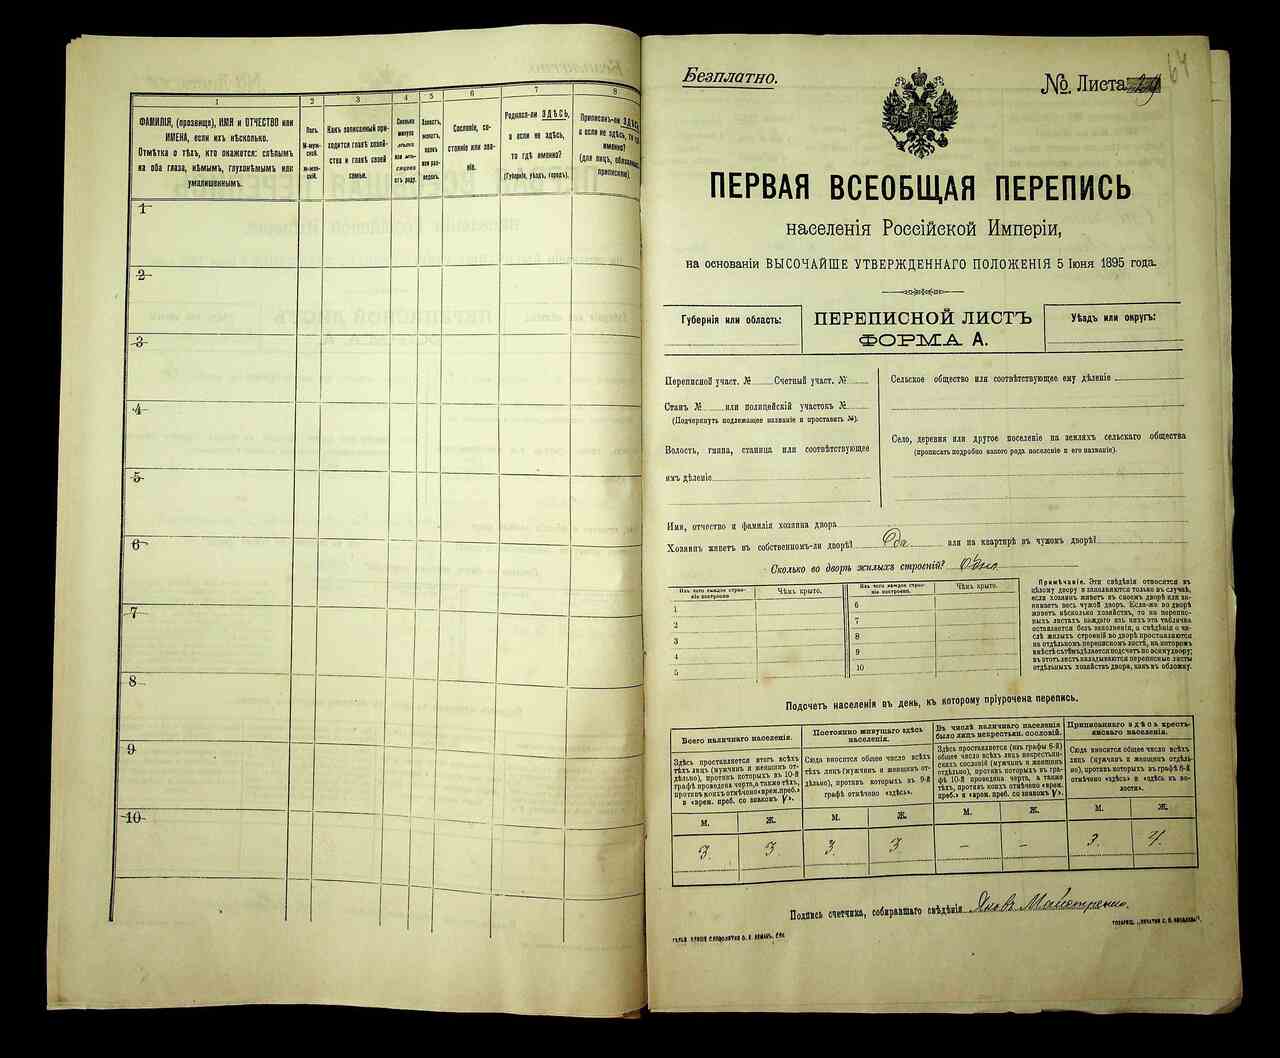 1
2
3
4
5
6
7
8
ФАМИЛІЯ, (прозвище), ИМЯ и ОТЧЕСТВО или
ИМЕНА, если ихъ нѣсколько.
Отмѣтка о тѣхъ, кто окажется: слѣпымъ
на оба глаза, нѣмымъ, глухонѣмымъ или
умалишеннымъ.
Полъ.
М-муж-
ской.
Ж-жен-
скій.
Какъ записанный при-
ходится главѣ хозяй-
ства и главѣ своей
семьи.
Сколько
минуло
лѣтъ
или мѣ-
сяцевъ
отъ роду.
Сословіе, со-
стояніе или зва-
ніе.
Родился-ли ЗДѢСЬ,
а если не здѣсь,
то гдѣ именно?
(Губернія, уѣздъ, городъ).
Приписанъ-ли ЗДѢСЬ,
а если не здѣсь, то гдѣ
именно?
(для лицъ, обязанныхъ
припискою).
1
2
3
4
5
6
7
8
9
10
Безплатно.
№ Листа 29
64
ПЕРВАЯ ВСЕОБЩАЯ ПЕРЕПИСЬ
населенія Россійской Имперіи,
на основаніи ВЫСОЧАЙШЕ УТВЕРЖДЕННАГО ПОЛОЖЕНІЯ 5 Іюня 1895 года.
Губернія или область:
ПЕРЕПИСНОЙ ЛИСТЪ
ФОРМА А.
Уѣздъ или округъ:
Переписной участ. № Счетный участ. №
Станъ № или полицейскій участокъ №
(Подчеркнуть подлежащее названіе и проставить №).
Волость, гмина, станица или соотвѣтствующее
имъ дѣленіе
Сельское общество или соотвѣтствующее ему дѣленіе
Село, деревня или другое поселеніе на земляхъ сельскаго общества
(прописать подробно какого рода поселеніе и его названіе).
Имя, отчество и фамилія хозяина двора
Хозяинъ живетъ въ собственномъ-ли дворѣ? Да или на квартирѣ въ чужомъ дворѣ?
Сколько во дворѣ жилыхъ строеній? Одно
Изъ чего каждое строе-
ніе построено
Чѣмъ крыто.
Изъ чего каждое строе-
ніе построено.
Чѣмъ крыто.
1
2
3
4
5
6
7
8
9
10
Примѣчаніе. Эти свѣдѣнія относятся къ
цѣлому двору и заполняются только въ случаѣ,
если хозяинъ живетъ въ своемъ дворѣ или за-
нимаетъ весь чужой дворъ. Если-же во дворѣ
живетъ нѣсколько хозяйствъ, то на перепис-
ныхъ листахъ каждаго изъ нихъ эта табличка
оставляется безъ заполненія, а свѣдѣнія о чи-
слѣ жилыхъ строеній во дворѣ проставляются
на отдѣльномъ переписномъ листѣ, на которомъ
вмѣстѣ съ тѣмъ дѣлается подсчетъ по всему двору;
въ этотъ листъ вкладываются переписные листы
отдѣльныхъ хозяйствъ двора, какъ въ обложку.
Подсчетъ населенія въ день, къ которому пріурочена перепись.
Всего наличнаго населенія.
Здѣсь проставляется итогъ всѣхъ
тѣхъ лицъ (мужчинъ и женщинъ от-
дѣльно), противъ которыхъ въ 10-й
графѣ проведена черта, а также тѣхъ,
противъ коихъ отмѣчено «врем. преб.»
и «врем. преб. со знакомъ V».
Постоянно живущаго здѣсь
населенія.
Сюда вносится общее число всѣхъ
тѣхъ лицъ (мужчинъ и женщинъ от-
дѣльно), противъ которыхъ въ 9-й
графѣ отмѣчено «здѣсь».
Въ числѣ наличнаго населенія
было лицъ некрестьян. сословій.
Здѣсь проставляется (изъ графы 6-й)
общее число всѣхъ лицъ некрестьян-
скихъ сословій (мужчинъ и женщинъ
отдѣльно), противъ которыхъ въ гра-
фѣ 10-й проведена черта, а также
тѣхъ, противъ коихъ отмѣчено «врем.
преб.» и «врем. преб. со знакомъ V».
Приписаннаго здѣсь кресть-
янскаго населенія.
Сюда вносится общее число всѣхъ
лицъ (мужчинъ и женщинъ отдѣль-
но), противъ которыхъ въ графѣ 8-й
отмѣчено «здѣсь» и «здѣсь въ во-
лости».
М. Ж. М. Ж. М. Ж. М. Ж.
3. 3 3. 3 – – 3. 4.
Подпись счетчика, собиравшаго свѣдѣнія Яковъ Майстренко.